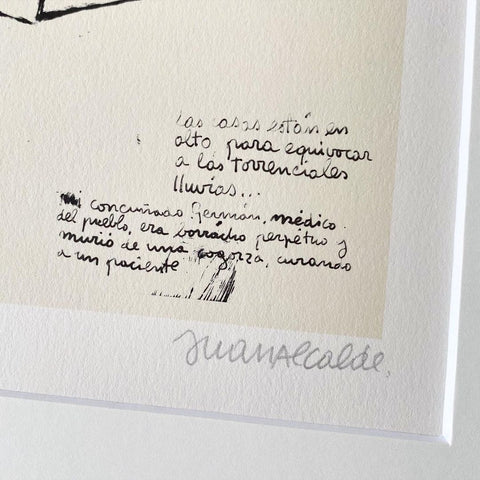 Las casas están en
alto para equivocar
a las torrenciales
lluvias...
mi concuñado Germán, médico
del pueblo, era borracho perpétuo y
murió de una cogorza, curando
a un paciente
Juan Alcalde.